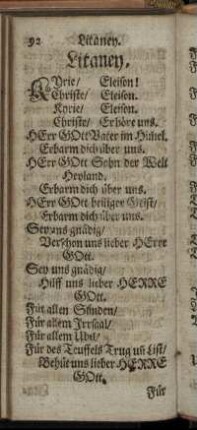 92 Litaney.
Litaney.
KYrie/ Eleison!
Christe/ Eleison.
Kyrie/ Eleison.
Christe/ Erhöre uns.
HErr GOtt Vater im Him̄el.
Erbarm dich über uns.
HErr GOtt Sohn der Welt
Heyland.
Erbarm dich über uns.
HErr GOtt heiliger Geist/
Erbarm dich über uns.
Sey uns gnädig/
Verschon uns lieber HErre
GOtt.
Sey uns gnädig/
Hilff uns lieber HERRE
GOtt.
Für allen Sünden/
Für allem Irrsaal/
Für allem Übel/
Für des Teuffels Trug uñ List/
Behüt uns lieber HERRE
GOtt.
Für